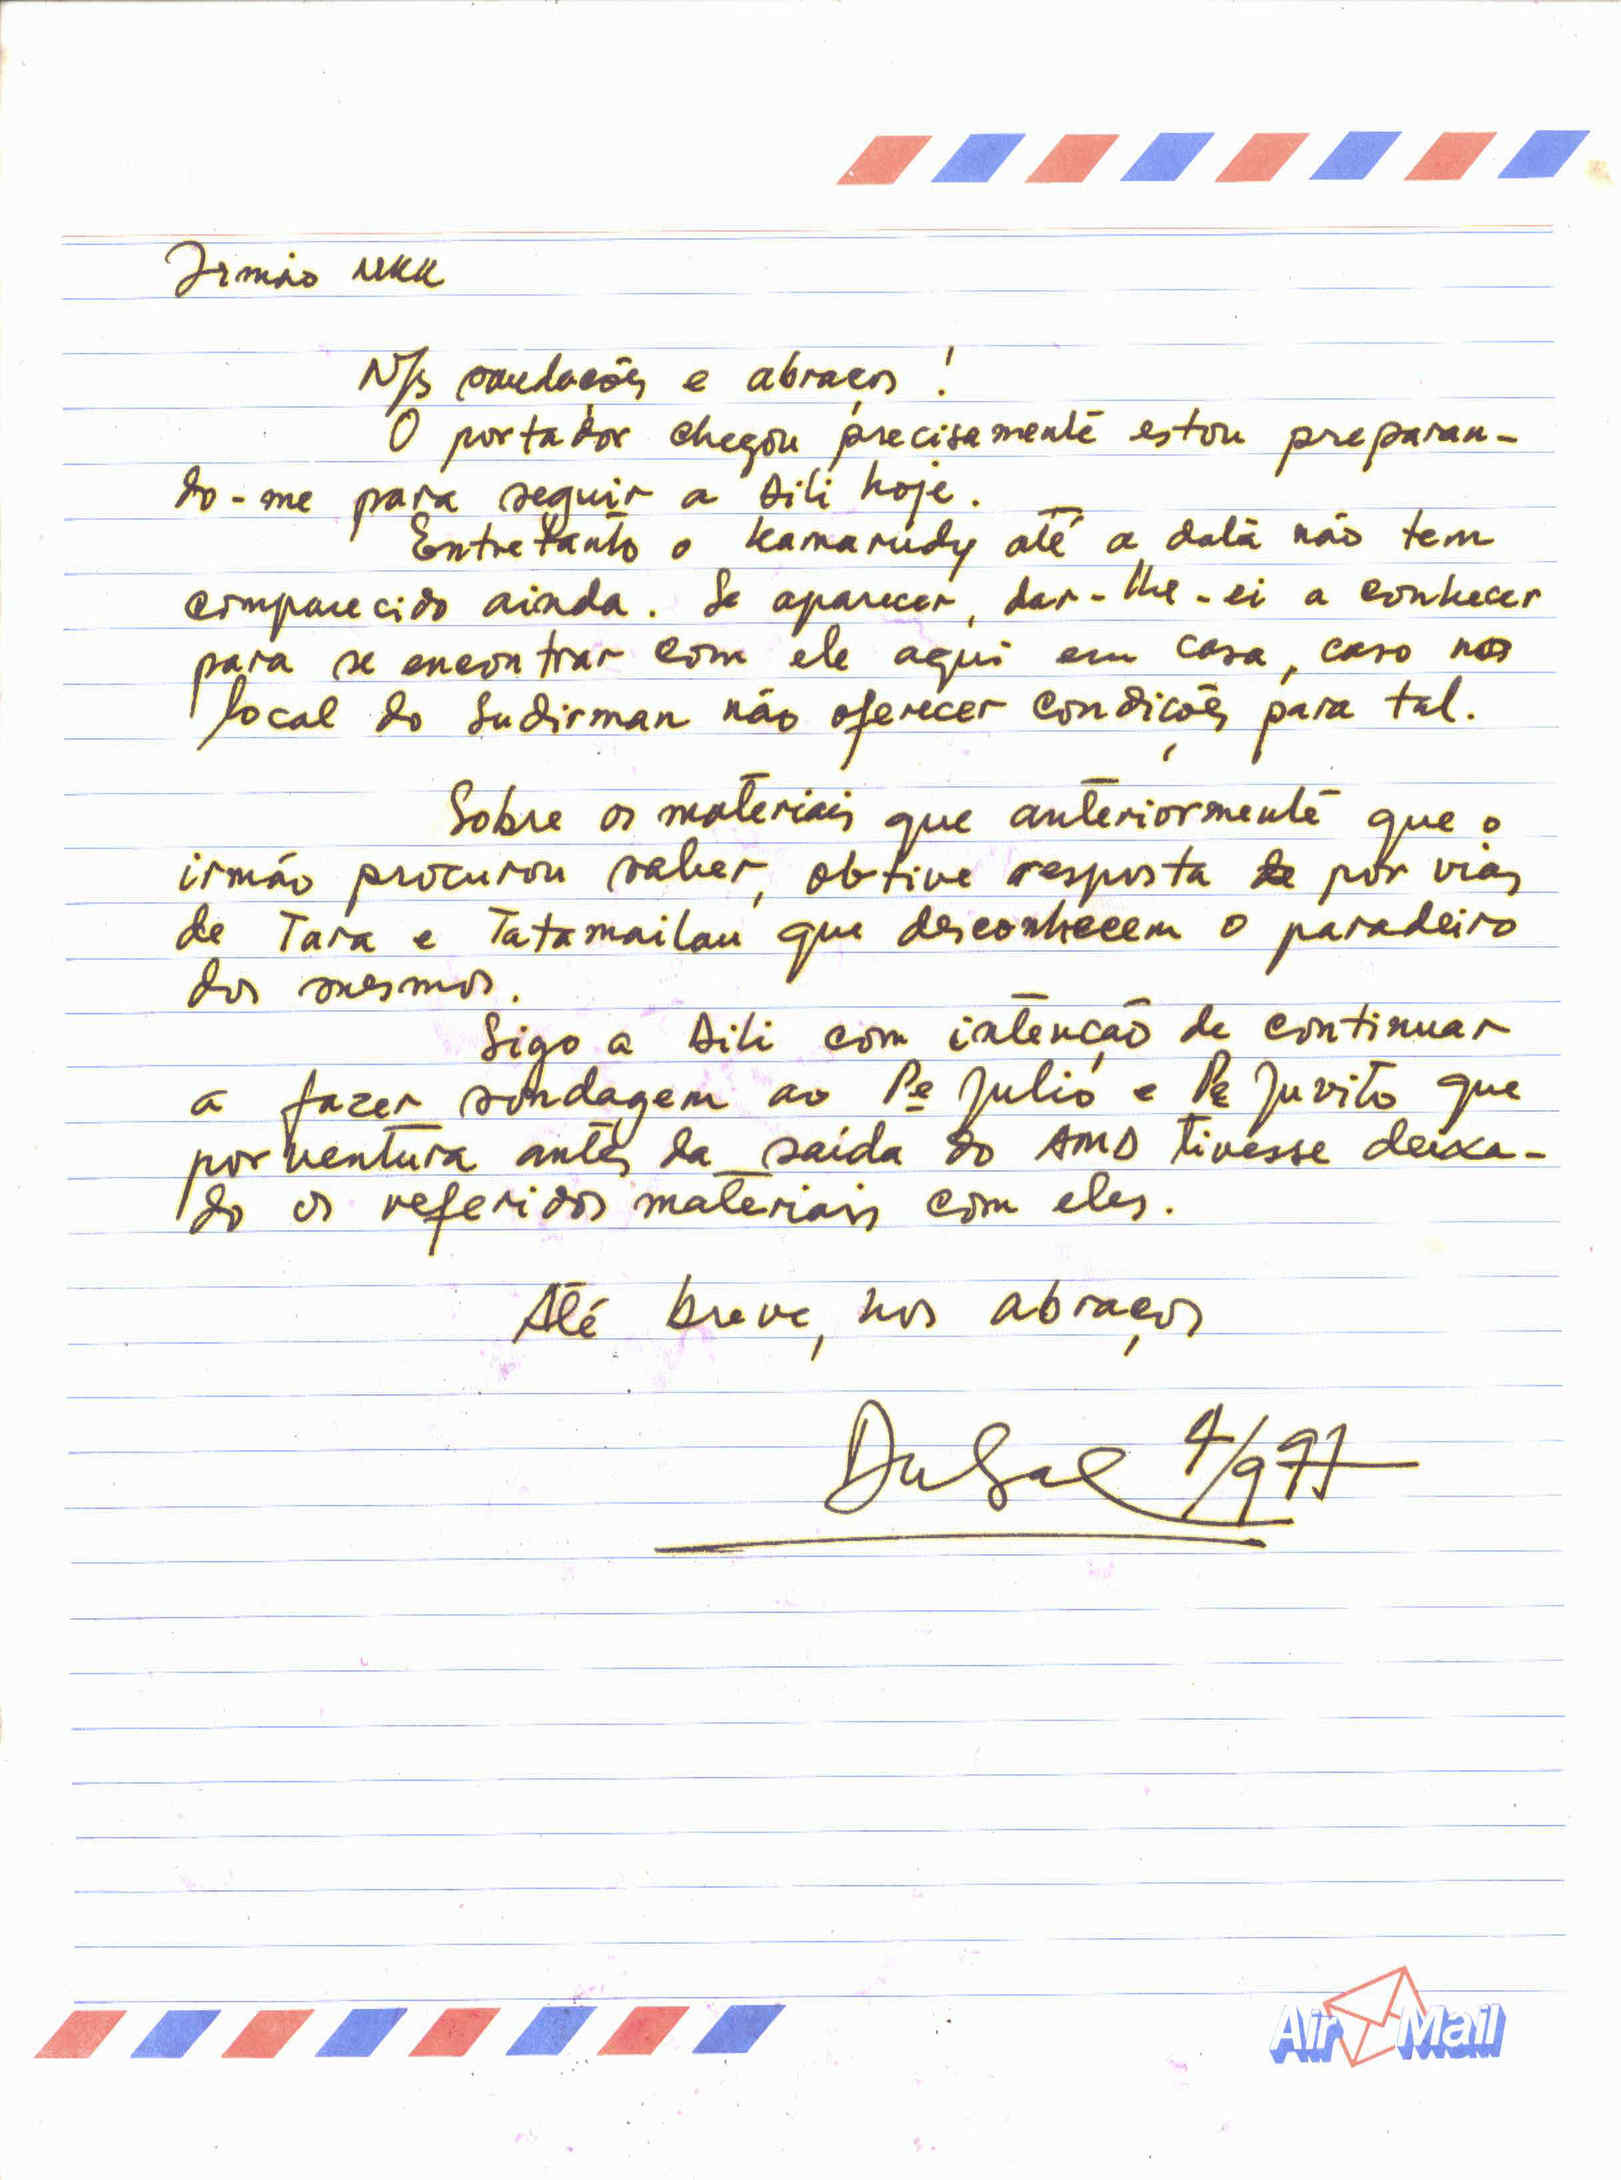 Irmão UKK
N/s saudações e abraços!
O portador chegou precisamente estou preparan-
do-me para seguir a Dili hoje.
Entretanto o Kamarudy até a data não tem
comparecido ainda. Se aparecer, dar-lhe-ei a conhecer
para se encontrar com ele aqui em casa, caso nos
local do Sudirman não oferecer condições para tal.
Sobre os materiais que anteriormente que o
irmão procurou saber, obtive resposta de por vias
de Tara e Tatamailau que desconhecem o paradeiro
dos mesmos.
Sigo a Dili com intenção de continuar
a fazer sondagem ao Pe Julio e Pe Juvito que
porventura antes da saída do AMD tivesse deixa-
do os referidos materiais com eles.
Até breve, nos abraços
DuSae 4/9 97
Air Mail